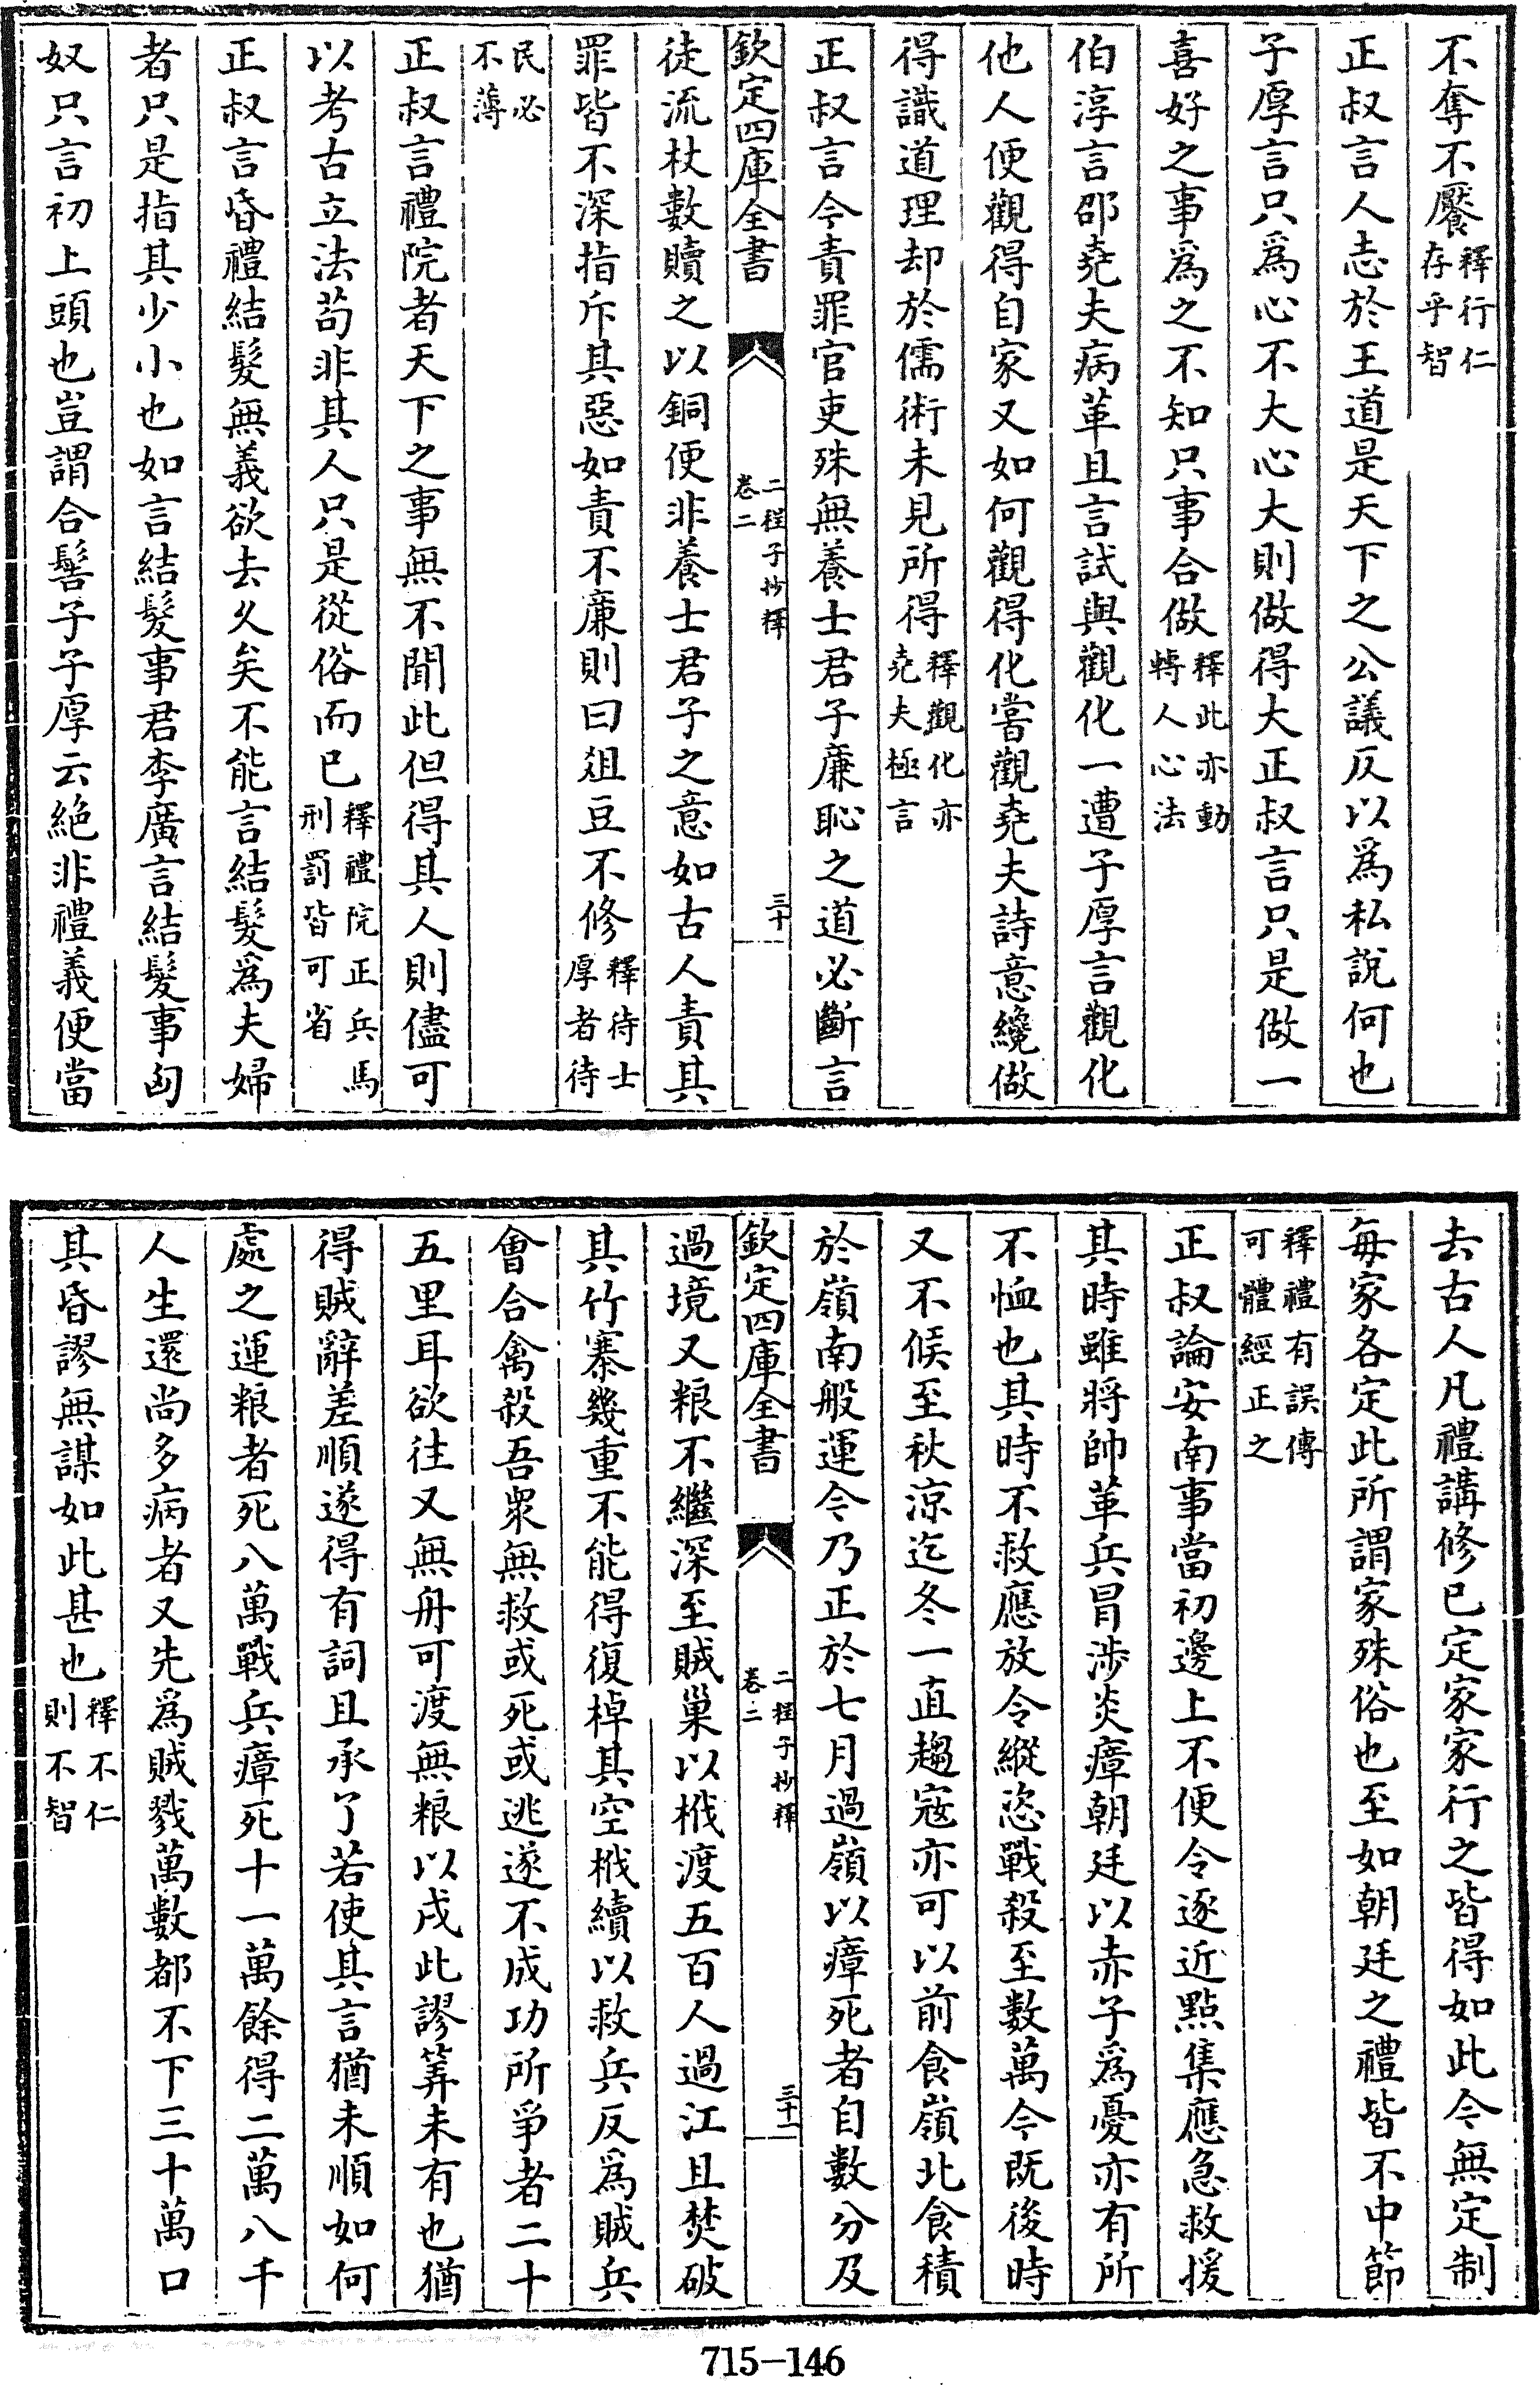 不奪不饜釋行仁存乎智
正叔言人志於王道是天下之公議反以為私說何也
子厚言只為心不大心大則做得大正叔言只是做一
喜好之事為之不知只事合做釋此亦動轉人心法
伯淳言邵堯夫病革且言試與觀化一遭子厚言觀化
他人便觀得自家又如何觀得化嘗觀堯夫詩意纔做
得識道理却於儒術未見所得釋觀化亦堯夫極言
正叔言今責罪官吏殊無養士君子廉恥之道必斷言
欽定四庫全書 二程子抄釋 卷二 三十
徒流杖數贖之以銅便非養士君子之意如古人責其
罪皆不深指斥其惡如責不廉則曰俎豆不修釋待士厚者待
民必不薄
正叔言禮院者天下之事無不聞此但得其人則儘可
以考古立法苟非其人只是從俗而已釋禮院正兵馬刑罰皆可省
正叔言昏禮結髮無義欲去久矣不能言結髮為夫婦
者只是指其少小也如言結髮事君李廣言結髮事匈
奴只言初上頭也豈謂合髻子子厚云絶非禮義便當
去古人凡禮講修已定家家行之皆得如此今無定制
每家各定此所謂家殊俗也至如朝廷之禮皆不中節
釋禮有誤傳可體經正之
正叔論安南事當初邊上不便令逐近點集應急救援
其時雖將帥革兵冒涉炎瘴朝廷以赤子為憂亦有所
不恤也其時不救應放令縱恣戰殺至數萬今既後時
又不候至秋涼迄冬一直趨寇亦可以前食嶺北食積
於嶺南般運今乃正於七月過嶺以瘴死者自數分及
欽定四庫全書 二程子抄釋 卷二 三十一
過境又粮不繼深至賊巢以栰渡五百人過江且焚破
其竹寨幾重不能得復棹其空栰續以救兵反為賊兵
會合禽殺吾衆無救或死或逃遂不成功所爭者二十
五里耳欲往又無舟可渡無粮以戍此謬筭未有也猶
得賊辭差順遂得有詞且承了若使其言猶未順如何
處之運粮者死八萬戰兵瘴死十一萬餘得二萬八千
人生還尚多病者又先為賊戮萬數都不下三十萬口
其昏謬無謀如此甚也釋不仁則不智
715-146